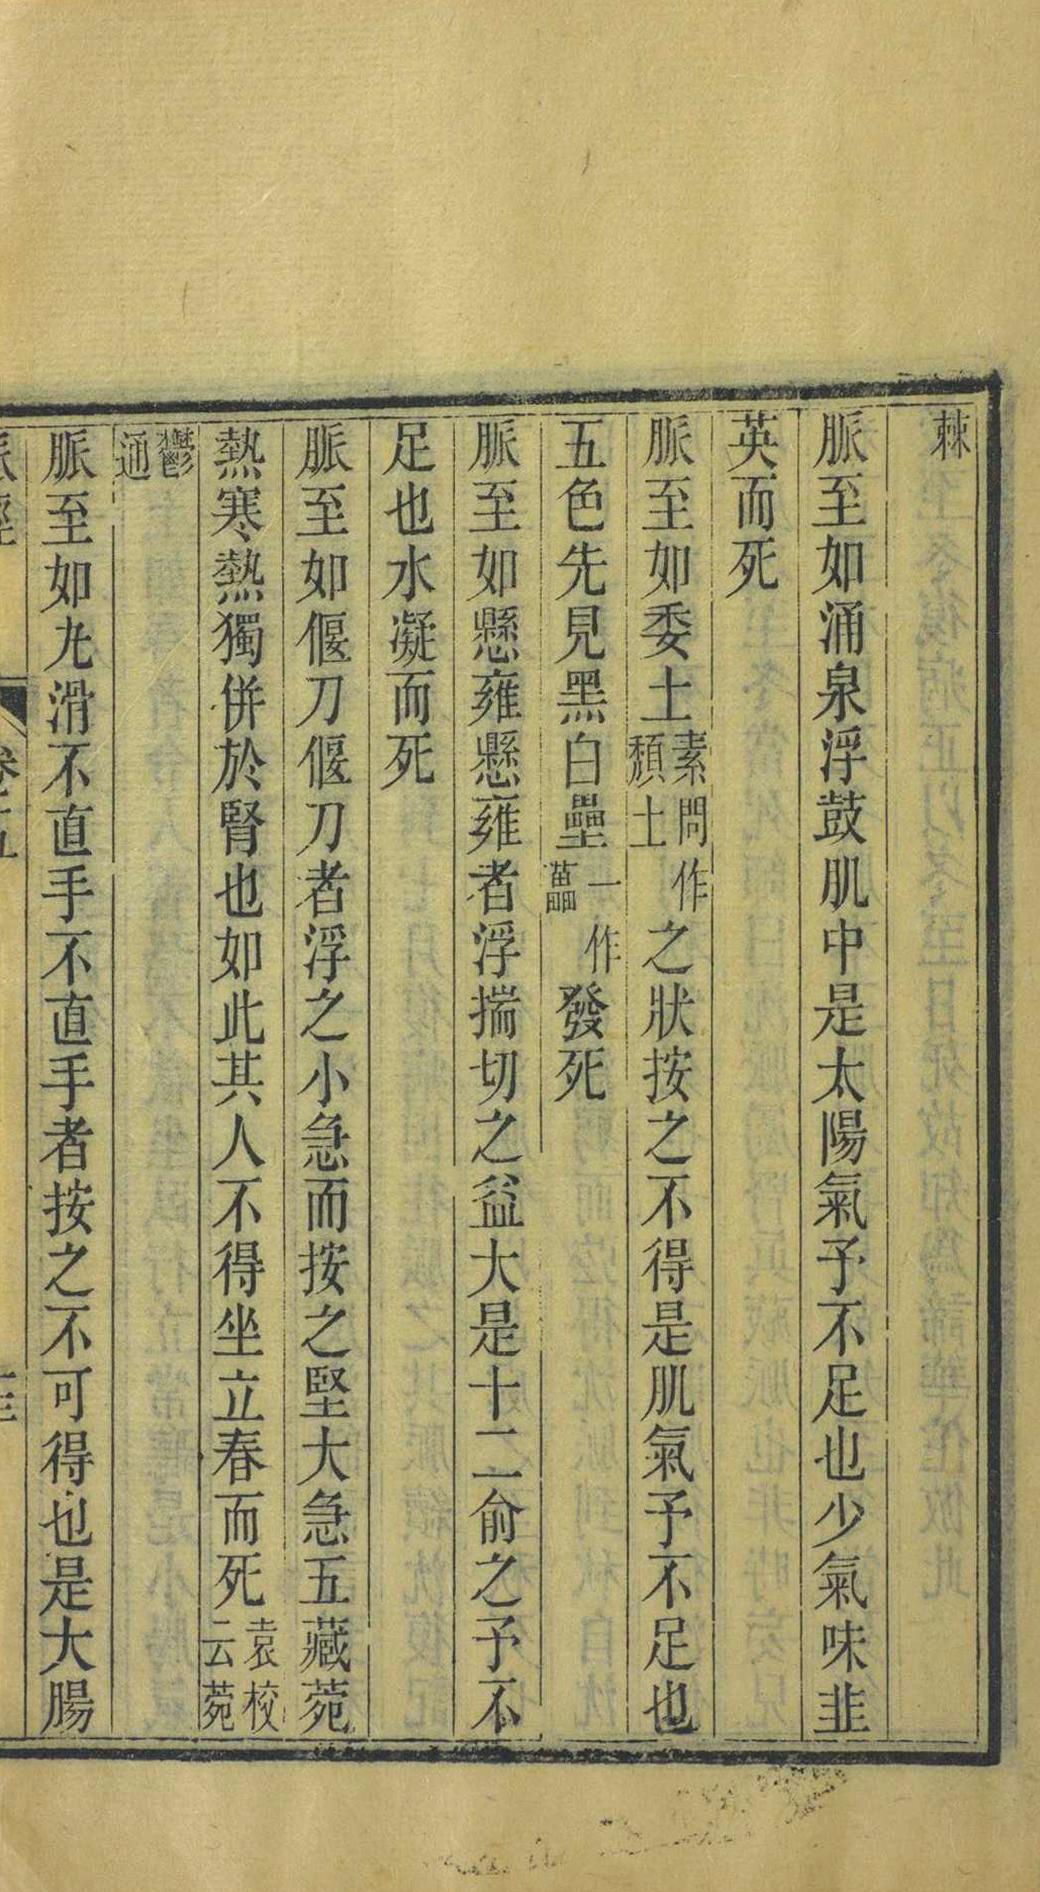 棘
脈至如涌泉浮鼓肌中是太陽氣予不足也少氣味韭
英而死
脈至如委土素問作頹土之狀按之不得是肌氣予不足也
五色先見黑白壘一作藟發死
脈至如懸雍懸雍者浮揣切之益大是十二俞之予不
足也水凝而死
脈至如偃刀偃刀者浮之小急而按之堅大急五藏菀
熱寒熱獨併於腎也如此其人不得坐立春而死袁校云菀
鬱通
脈至如九滑不直手不直手者按之不可得也是大腸
脈經 卷五